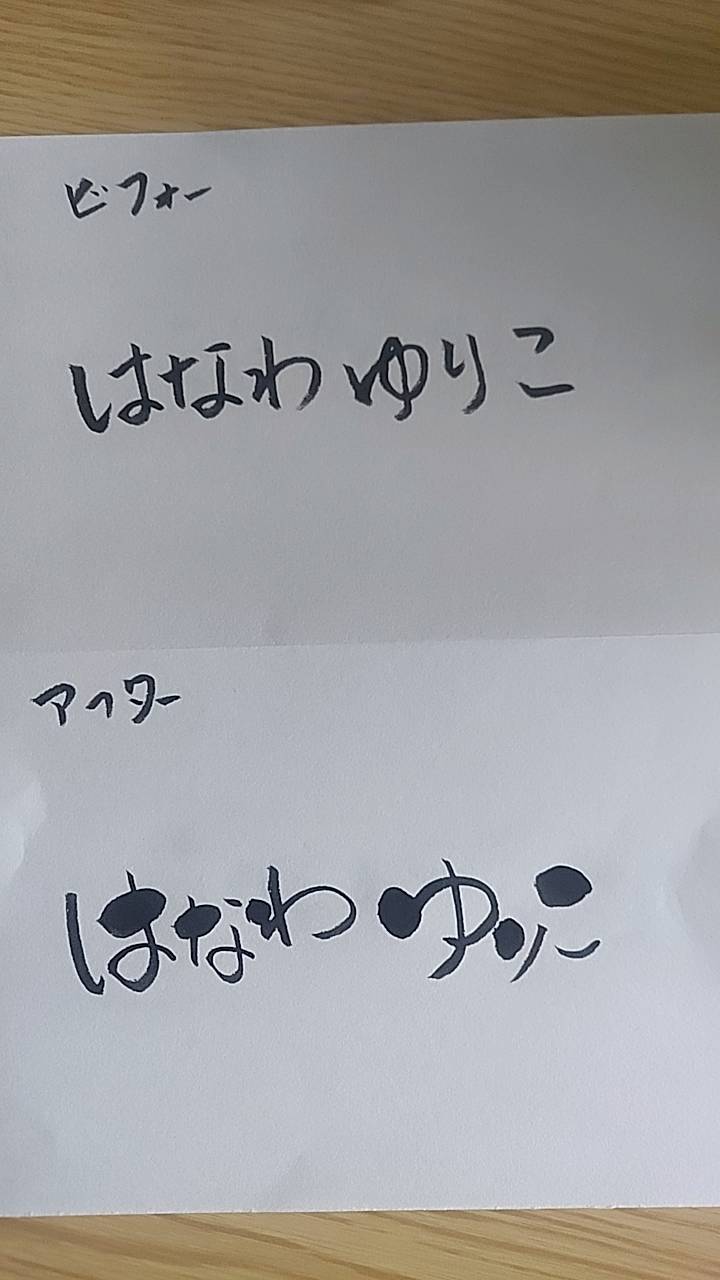 ビフォー
はなわ ゆりこ
アフター
はなわ ゆりこ